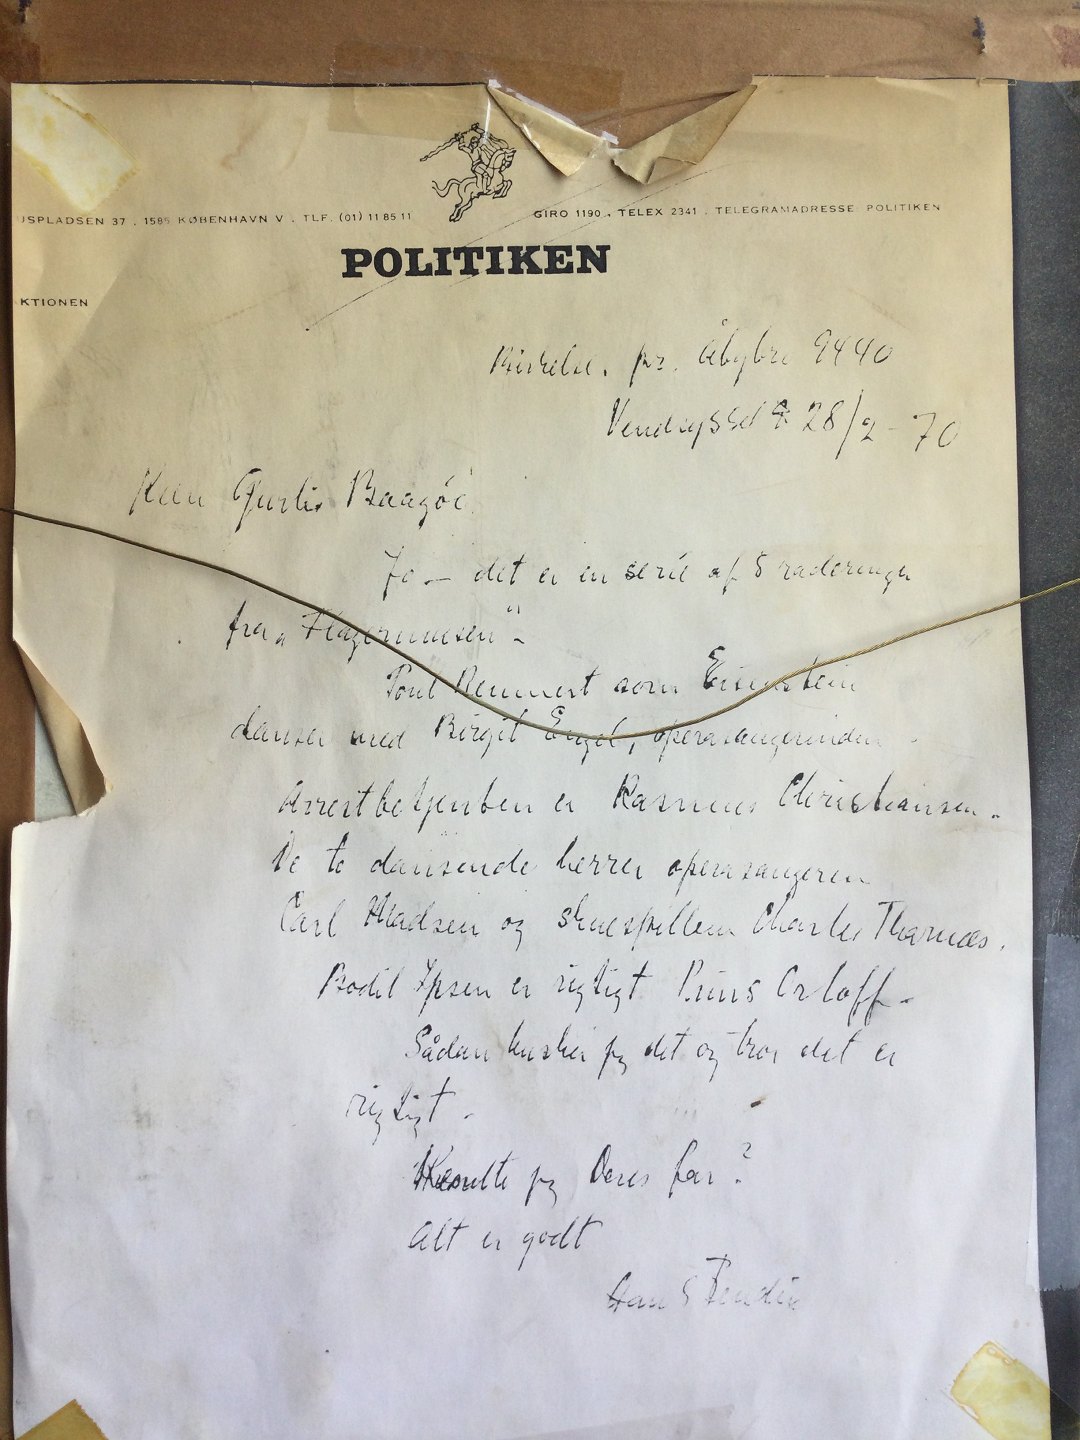 USPLADSEN 37 . 1585 KØBENHAVN V . TLF. (01) 11 85 11
GIRO 1190 . TELEX 2341 . TELEGRAMADRESSE: POLITIKEN
POLITIKEN
KTIONEN
Birkelse. pr. Åbybro 9440
Vendsyssel 28/2-70
Baagöe
Ja – det er en serie af 5 raderinger
fra „Flagermusen" –
Poul Reumert som Eisenstein
danser med Birgit Engel, operasangerinden –
Arrestbetjenten er Rasmus Christiansen –
De to dansende herrer operasangeren
Carl Madsen og skuespilleren Charles Tharnæs.
Bodil Ipsen er rigtigt Prins Orloff –
Sådan husker jeg det og tror det er
rigtigt –
Kendte jeg Deres far?
Alt er godt
Hans Bendix